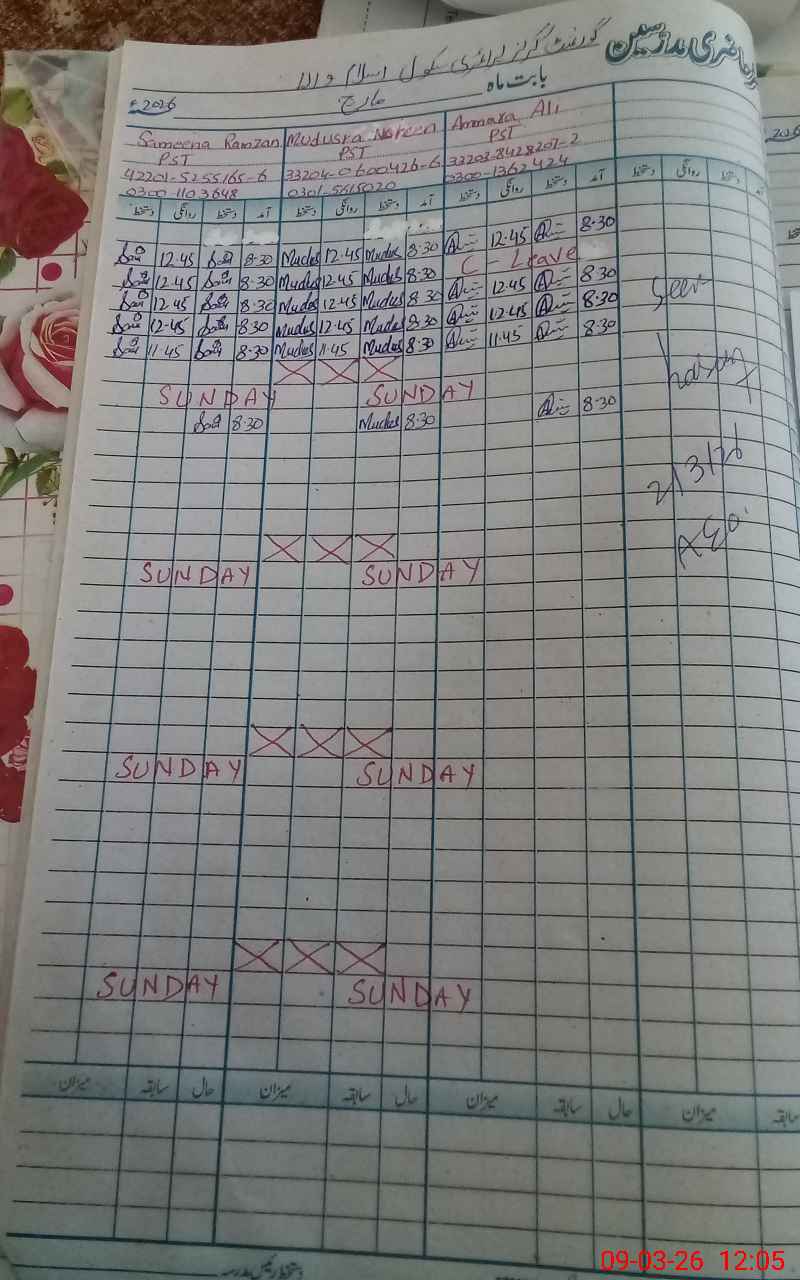 حاضری مدرسین
گورنمنٹ گرلز پرائمری سکول اسلام
بابت ماہ مارچ 2026ء
Sameena Ramzan Mudusra Noreen Ammara Ali
PST PST PST
42201-5255165-6 33204-0600426-6 33203-8428207-2
0300-1103648 0301-5615020 0300-1362424
دستخط روانگی دستخط آمد دستخط روانگی دستخط آمد دستخط روانگی دستخط آمد دستخط روانگی دستخط آمد
12.45 8.30 Mudus 12.45 Mudus 8.30 12.45 8.30
12.45 8.30 Mudus 12.45 Mudus 8.30 C - Leave
12.45 8.30 Mudus 12.45 Mudus 8.30 12.45 8.30
12.45 8.30 Mudus 12.45 Mudus 8.30 12.45 8.30
11.45 8.30 Mudus 11.45 Mudus 8.30 11.45 8.30
Seen
SUNDAY SUNDAY
8.30 Mudus 8.30 8.30
2/3/26
AEO
SUNDAY SUNDAY
SUNDAY SUNDAY
SUNDAY SUNDAY
میزان سابقہ حال میزان سابقہ حال میزان سابقہ حال میزان سابقہ
دستخط رئیس مدرسہ
09-03-26 12:05